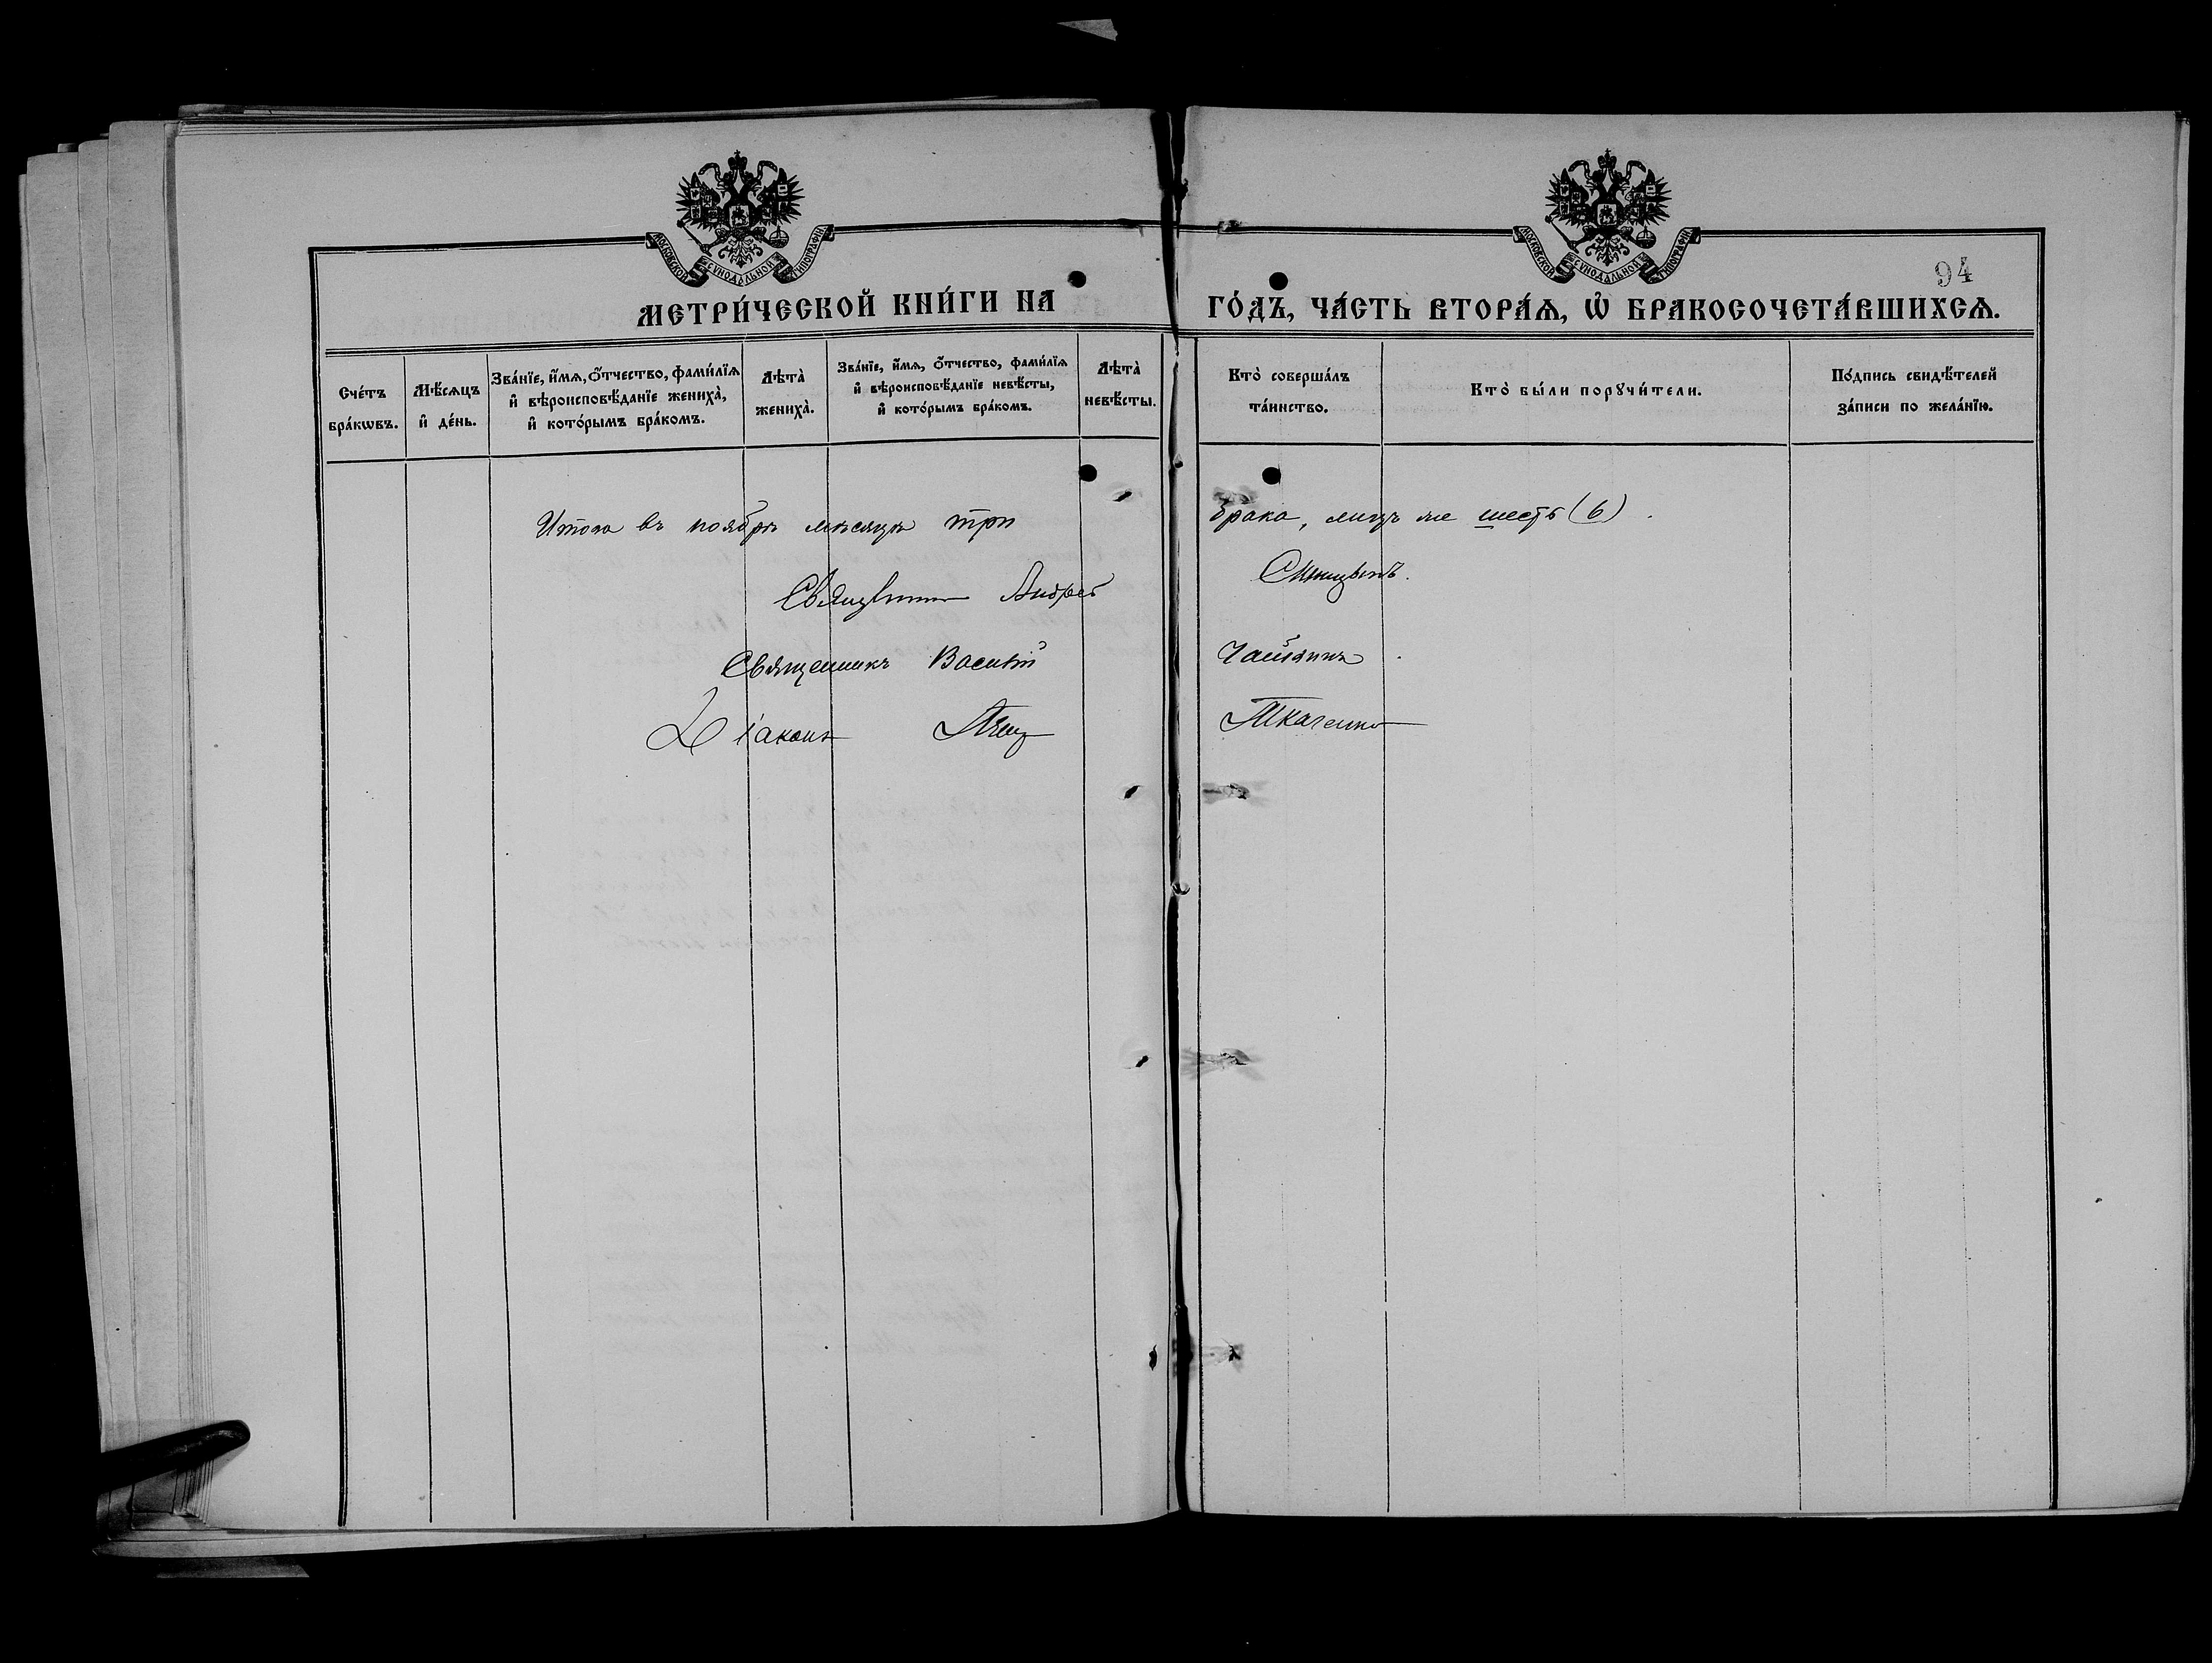 МОСКОВСКОЙ СѴНОДАЛЬНОЙ ТИПОГРАФІИ
МОСКОВСКОЙ СѴНОДАЛЬНОЙ ТИПОГРАФІИ
94
МЕТРИ́ЧЕСКОЙ КНИ́ГИ НА ГО́ДЪ, ЧА́СТЬ ВТОРА́Ѧ, Ѡ҆ БРАКОСОЧЕТА́ВШИХСѦ.
Сче́тъ бра́кѡвъ.
Мѣ́сѧцъ и҆ де́нь.
Зва́нїе, и҆́мѧ, ѻ҆́тчество, фами́лїѧ и҆ вѣроисповѣ́данїе жениха̀, и҆ кото́рымъ бра́комъ.
Лѣта̀ жениха̀.
Зва́нїе, и҆́мѧ, ѻ҆́тчество, фами́лїѧ и҆ вѣроисповѣ́данїе невѣ́сты, и҆ кото́рымъ бра́комъ.
Лѣта̀ невѣ́сты.
Кто̀ соверша́лъ та́инство.
Кто̀ бы́ли порꙋчи́тели.
По́дпись свидѣ́телей за́писи по жела́нїю.
Итого въ ноябрѣ мѣсяцѣ три брака, лицъ же шесть (6).
Священникъ Андрей
Священникъ Василій
Діаконъ Ткаченко